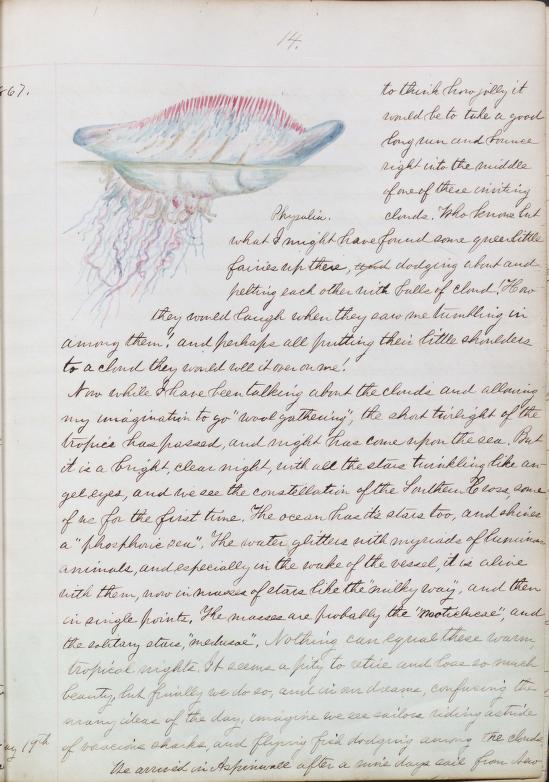 14.
867.
to think how jolly it
would be to take a good
long run and bounce
right into the middle
of one of these inviting
clouds. Who knows but
Physalia.
what I might have found some queer little
fairies up there, dodging about and
pelting each other with balls of cloud. How
they would laugh when they saw me tumbling in
among them! and perhaps all putting their little shoulders
to a cloud they would roll it over on me!
Now while I have been talking about the clouds and allowing
my imagination to go "wool gathering", the short twilight of the
tropics has passed, and night has come upon the sea. But
it is a bright, clear night, with all the stars twinkling like an-
gel eyes, and we see the constellation of the Southern Cross, some
of us for the first time. The ocean has its stars too, and shines
a "phosphoric sea". The water glitters with myriads of luminous
animals, and especially in the wake of the vessel, it is alive
with them, now in masses of stars like the "milky way", and then
in single points. The masses are probably the "noctilucae", and
the solitary stars, "medusae". Nothing can equal these warm,
tropical nights. It seems a pity to retire and lose so much
beauty, but finally we do so, and in our dreams, confusing the
many ideas of the day, imagine we see sailors riding astride
of voracious sharks, and flying fish dodging among the clouds
ay 19th
We arrived in Aspinwall after a nine days sail from New